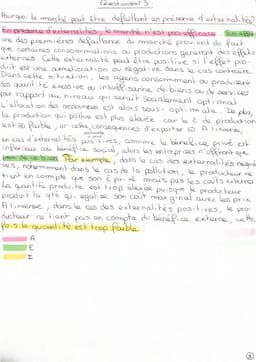 Questionnement 3
Pourquoi le marché peut être défaillant en présence d'externalités?
En présence d'externalités, le marché n'est pas efficace.
une des premières défaillance du marché provient du fait
que certaines consommations ou productions génèrent des effets
externes. Cette externalité peut être positive si l'effet pro-
duit est une amélioration ou négative dans le cas contraire.
Dans cette situation, les agents consomment ou produisent
des quantité excessive ou insuffisante de biens ou de services
par rapport au niveau qui serait socialement optimal.
L'allocation des ressources est alors sous-optimale. De plus,
la production qui pollue est plus élevée car le coût de production
est faible, or cette conséquences d'exporter A l'inverse,
en cas d'externalités positives, comme le bénéfice privé est
inférieur au bénéfice social, alors les entreprises n'offrent que
peu de ce bien. Par exemple, dans le cas des externalités négati
ves, notamment dans le cas de la pollution, le producteur ne
tient en compte que son c privé mais pas les coûts externes
La quantité produite est trop élevée puisque le producteur
produit la qté qui égalise son coût marginal avec les prix.
A l'inverse, dans le cas des externalités positives, le pro-
ducteur ne tient pas en compte du bénéfice externe, cette
fois la quantité est trop faible.
A
E
I